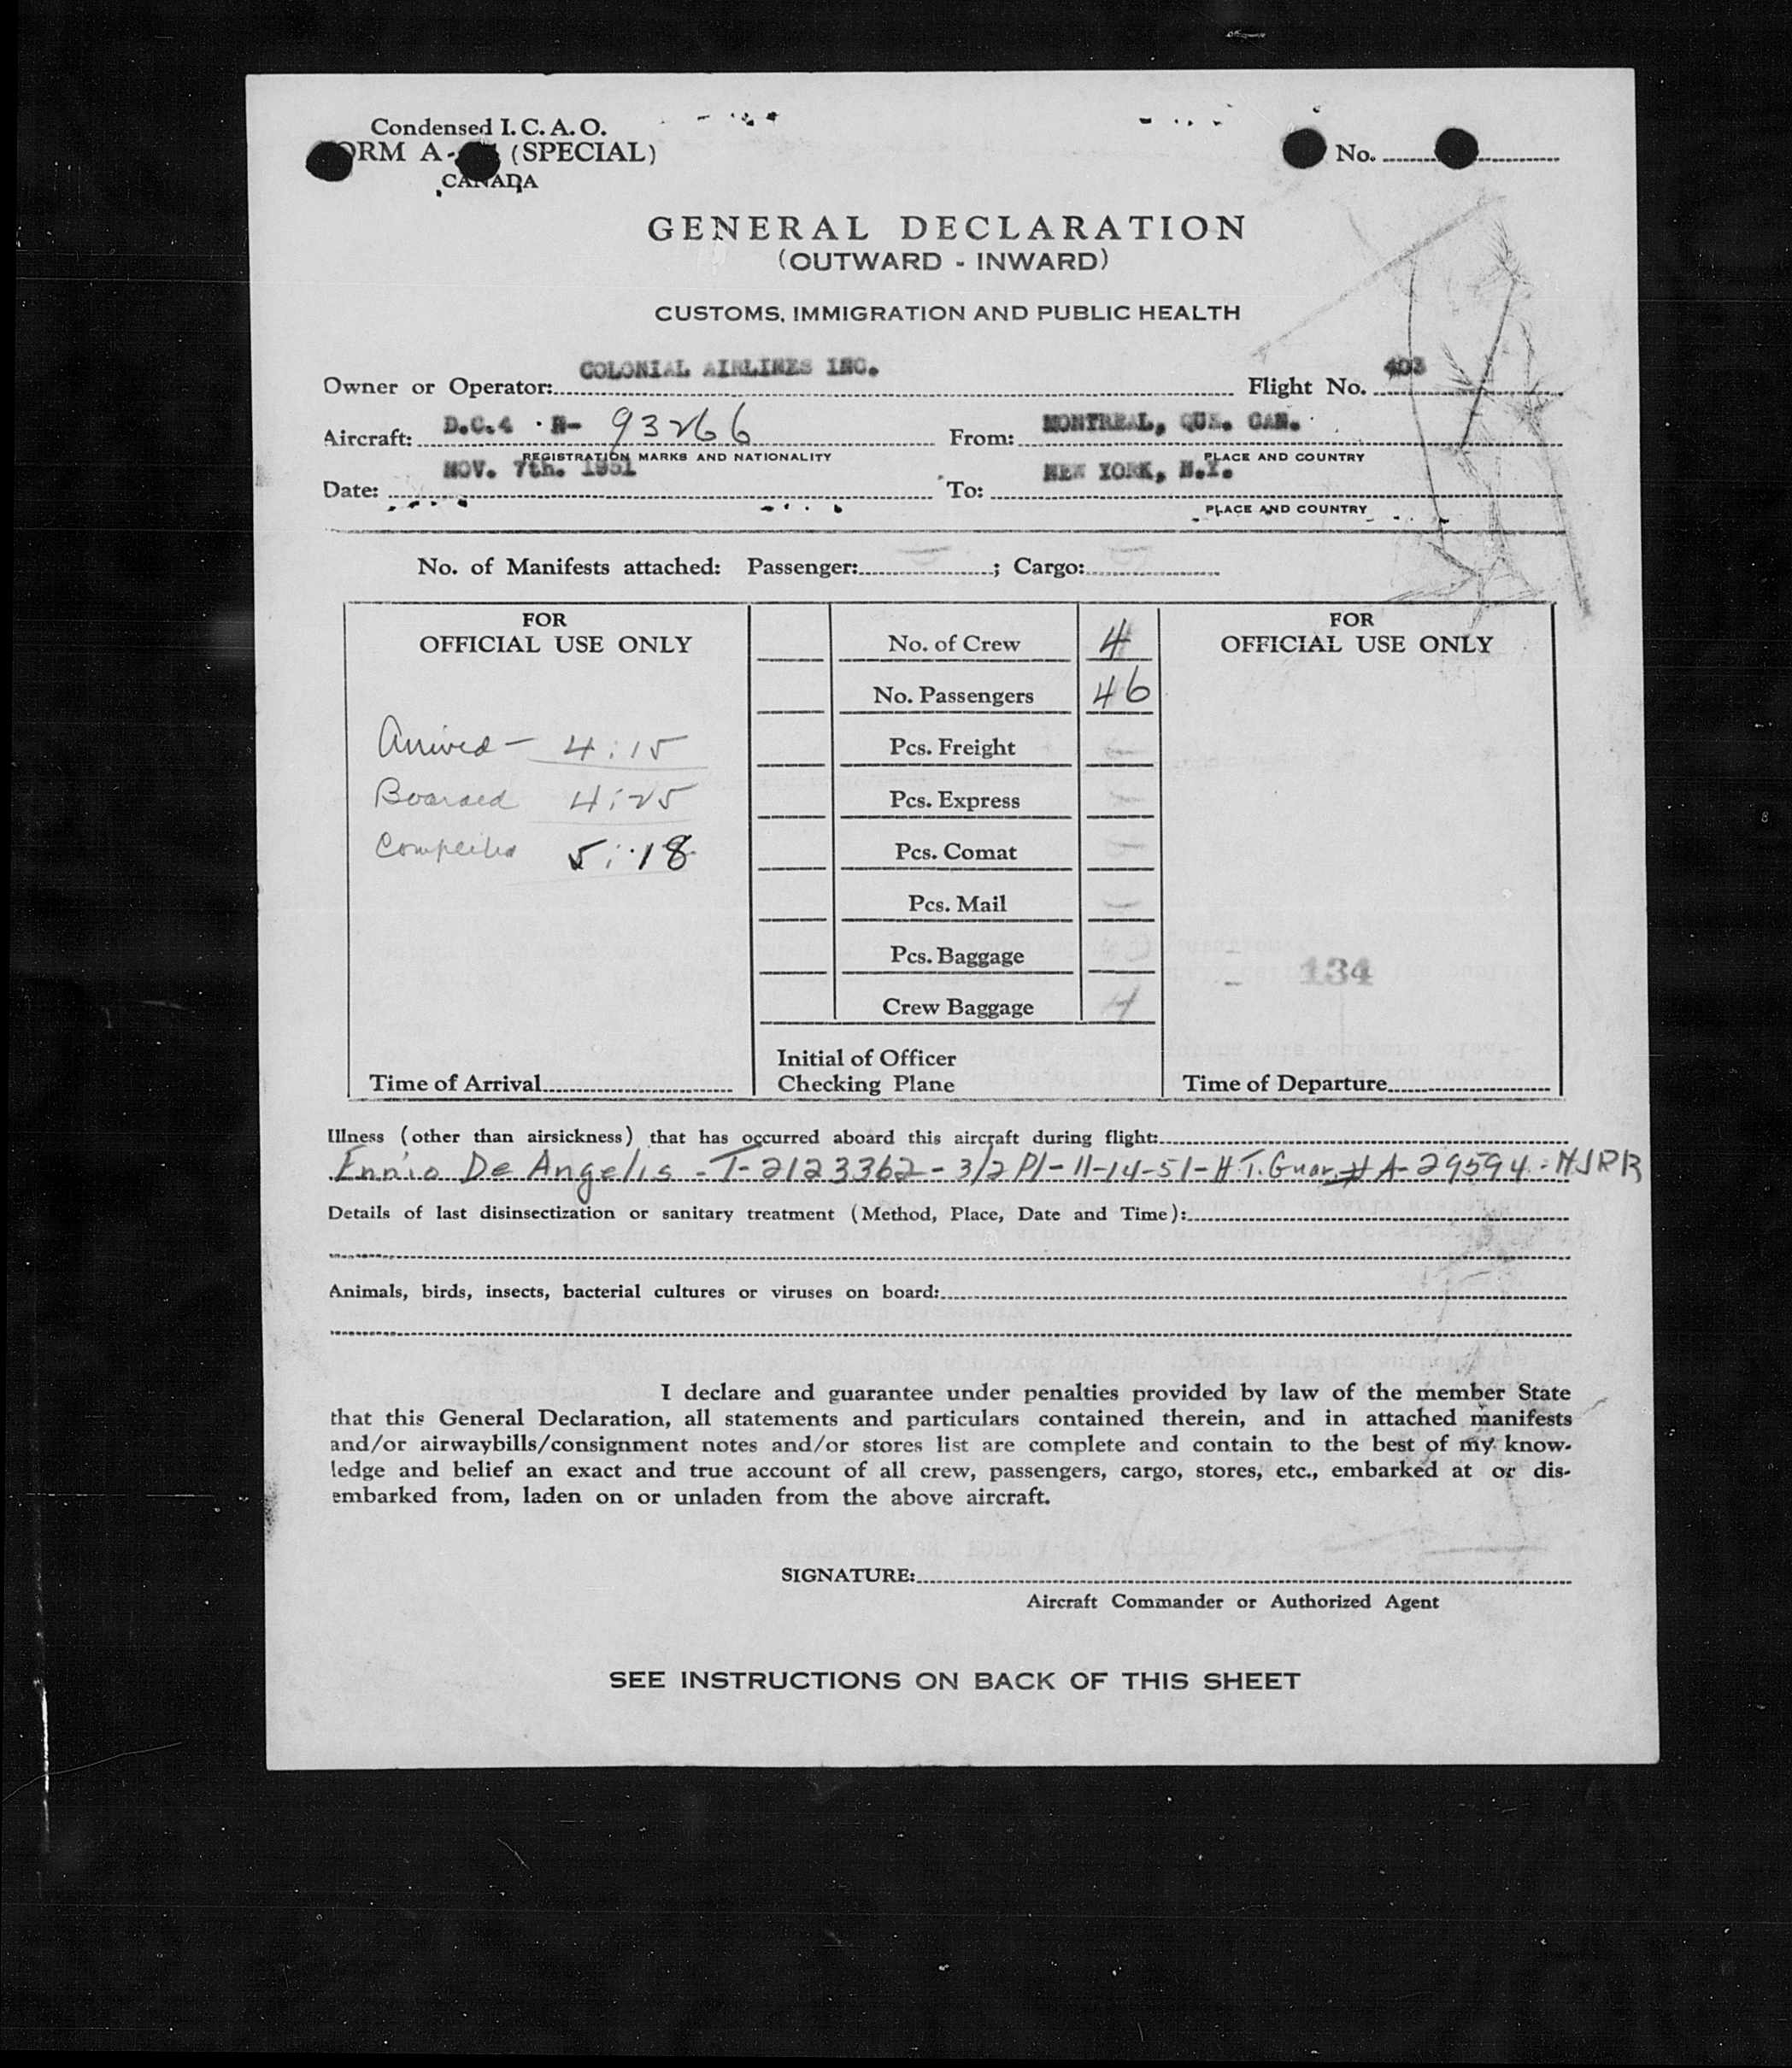 Condensed I. C. A. O.
ORM A- (SPECIAL)
CANADA
No.
GENERAL DECLARATION
(OUTWARD - INWARD)
CUSTOMS, IMMIGRATION AND PUBLIC HEALTH
Owner or Operator: COLONIAL AIRLINES INC. Flight No. 403
Aircraft: D.C.4 · N- 93266 From: MONTREAL, QUE. CAN.
REGISTRATION MARKS AND NATIONALITY PLACE AND COUNTRY
Date: NOV. 7th. 1951 To: NEW YORK, N.Y.
PLACE AND COUNTRY
No. of Manifests attached: Passenger: ; Cargo:
FOR
OFFICIAL USE ONLY
Arrived - 4:15
Boarded 4:25
Completed 5:18
Time of Arrival
No. of Crew 4
No. Passengers 46
Pcs. Freight -
Pcs. Express -
Pcs. Comat -
Pcs. Mail -
Pcs. Baggage
Crew Baggage 4
Initial of Officer
Checking Plane
FOR
OFFICIAL USE ONLY
134
Time of Departure
Illness (other than airsickness) that has occurred aboard this aircraft during flight:
Ennio De Angelis - T-2123362 - 3/2 Pl - 11-14-51 - H.T. Guar. # A-29594 - NJRR
Details of last disinsectization or sanitary treatment (Method, Place, Date and Time):
Animals, birds, insects, bacterial cultures or viruses on board:
I declare and guarantee under penalties provided by law of the member State
that this General Declaration, all statements and particulars contained therein, and in attached manifests
and/or airwaybills/consignment notes and/or stores list are complete and contain to the best of my know-
ledge and belief an exact and true account of all crew, passengers, cargo, stores, etc., embarked at or dis-
embarked from, laden on or unladen from the above aircraft.
SIGNATURE:
Aircraft Commander or Authorized Agent
SEE INSTRUCTIONS ON BACK OF THIS SHEET